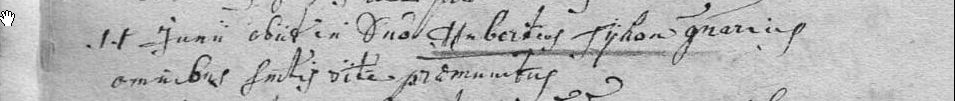 14 Junii obiit in Dno Hubertus Syhon gnarius
omnibus sctis rite praemunitus